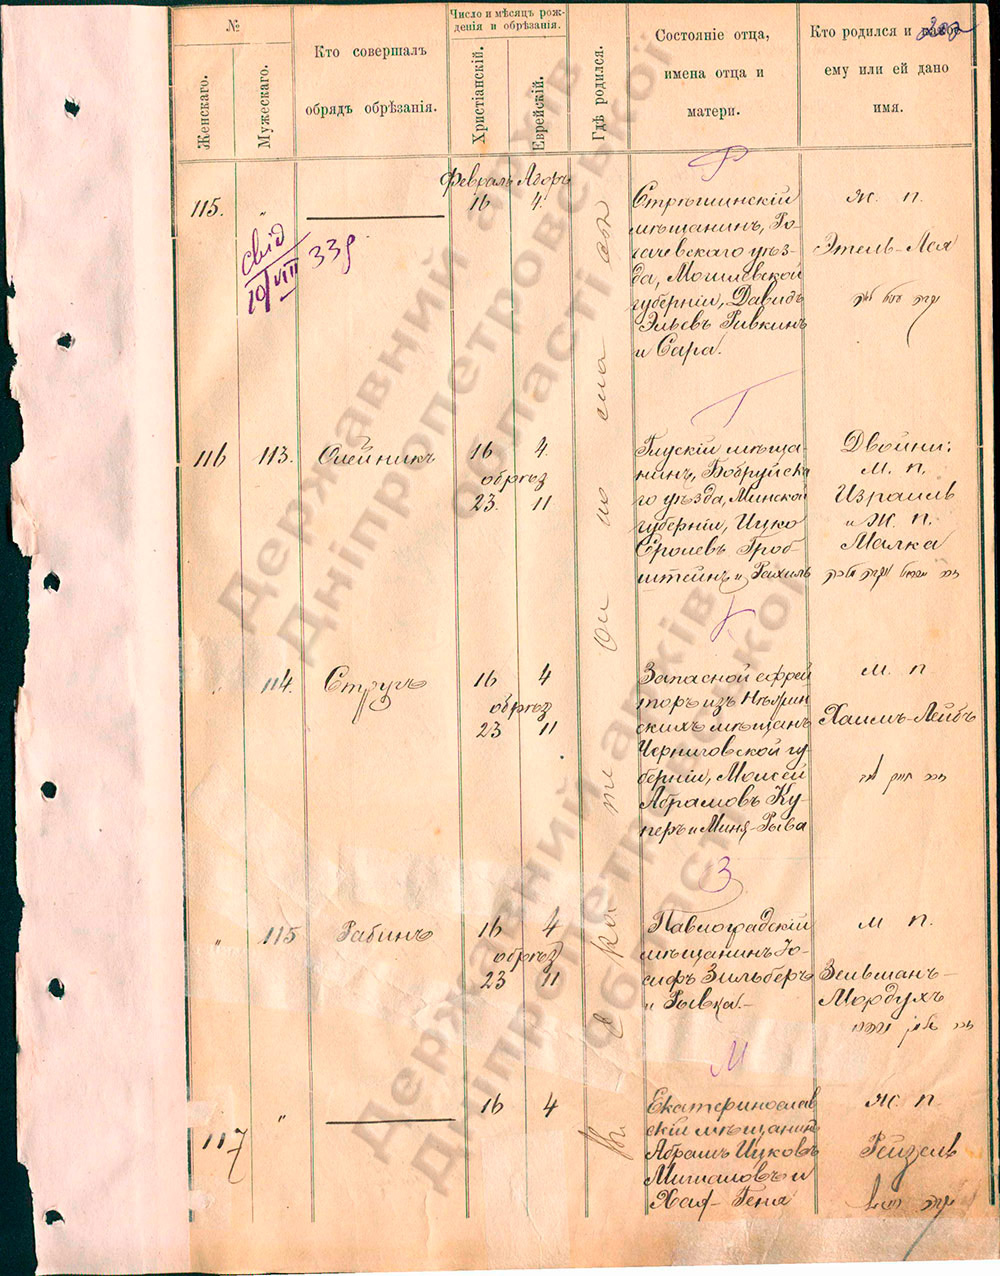 №
Женскаго.
Мужескаго.
Кто совершалъ
обрядъ обрѣзанія.
Число и мѣсяцъ рож-
денія и обрѣзанія.
Христіанскій.
Еврейскій.
Гдѣ родился.
Состояніе отца,
имена отца и
матери.
Кто родился и какое
ему или ей дано
имя.
Февраль Адоръ
115. " 16 4.
Стрѣшинскій
мѣщанинъ, Ро-
гачевскаго уѣз-
да, Могилевской
губерніи, Давидъ
Эльевъ Ривкинъ
и Сара.
Ж. п.
Этель-Лея
свід
10/VIII 33р
Г
116 113. Олейникъ 16 4.
обрѣз
23. 11
Глускій мѣща-
нинъ, Бобруйска-
го уѣзда, Минской
губерніи, Ицко
Еролевъ Гроб-
штейнъ и Рахиль
Двойни:
м. п.
Израиль
и Ж. п.
Малка
К
114. Стругъ 16 4
обрѣз
23 11
Запасной ефрей
торъ изъ Нѣжин
скихъ мѣщанъ
Черниговской гу-
берніи, Моисей
Абрамовъ Ку-
перъ и Миня-Рыва
м. п
Хаимъ-Лейбъ
З
" 115 Рабинъ 16 4
обрѣз
23 11
Павлоградскій
мѣщанинъ Іо-
сифъ Зильберъ
и Рывка.-
м п.
Зельманъ-
Мордухъ
М
117 " 16 4
Екатеринослав
скій мѣщанинъ
Абрамъ Ицковъ
Хая-Геня
Ж. п.
Рейзель
Державний архів
Дніпропетровської
області
Державний архів
Дніпропетровської
області